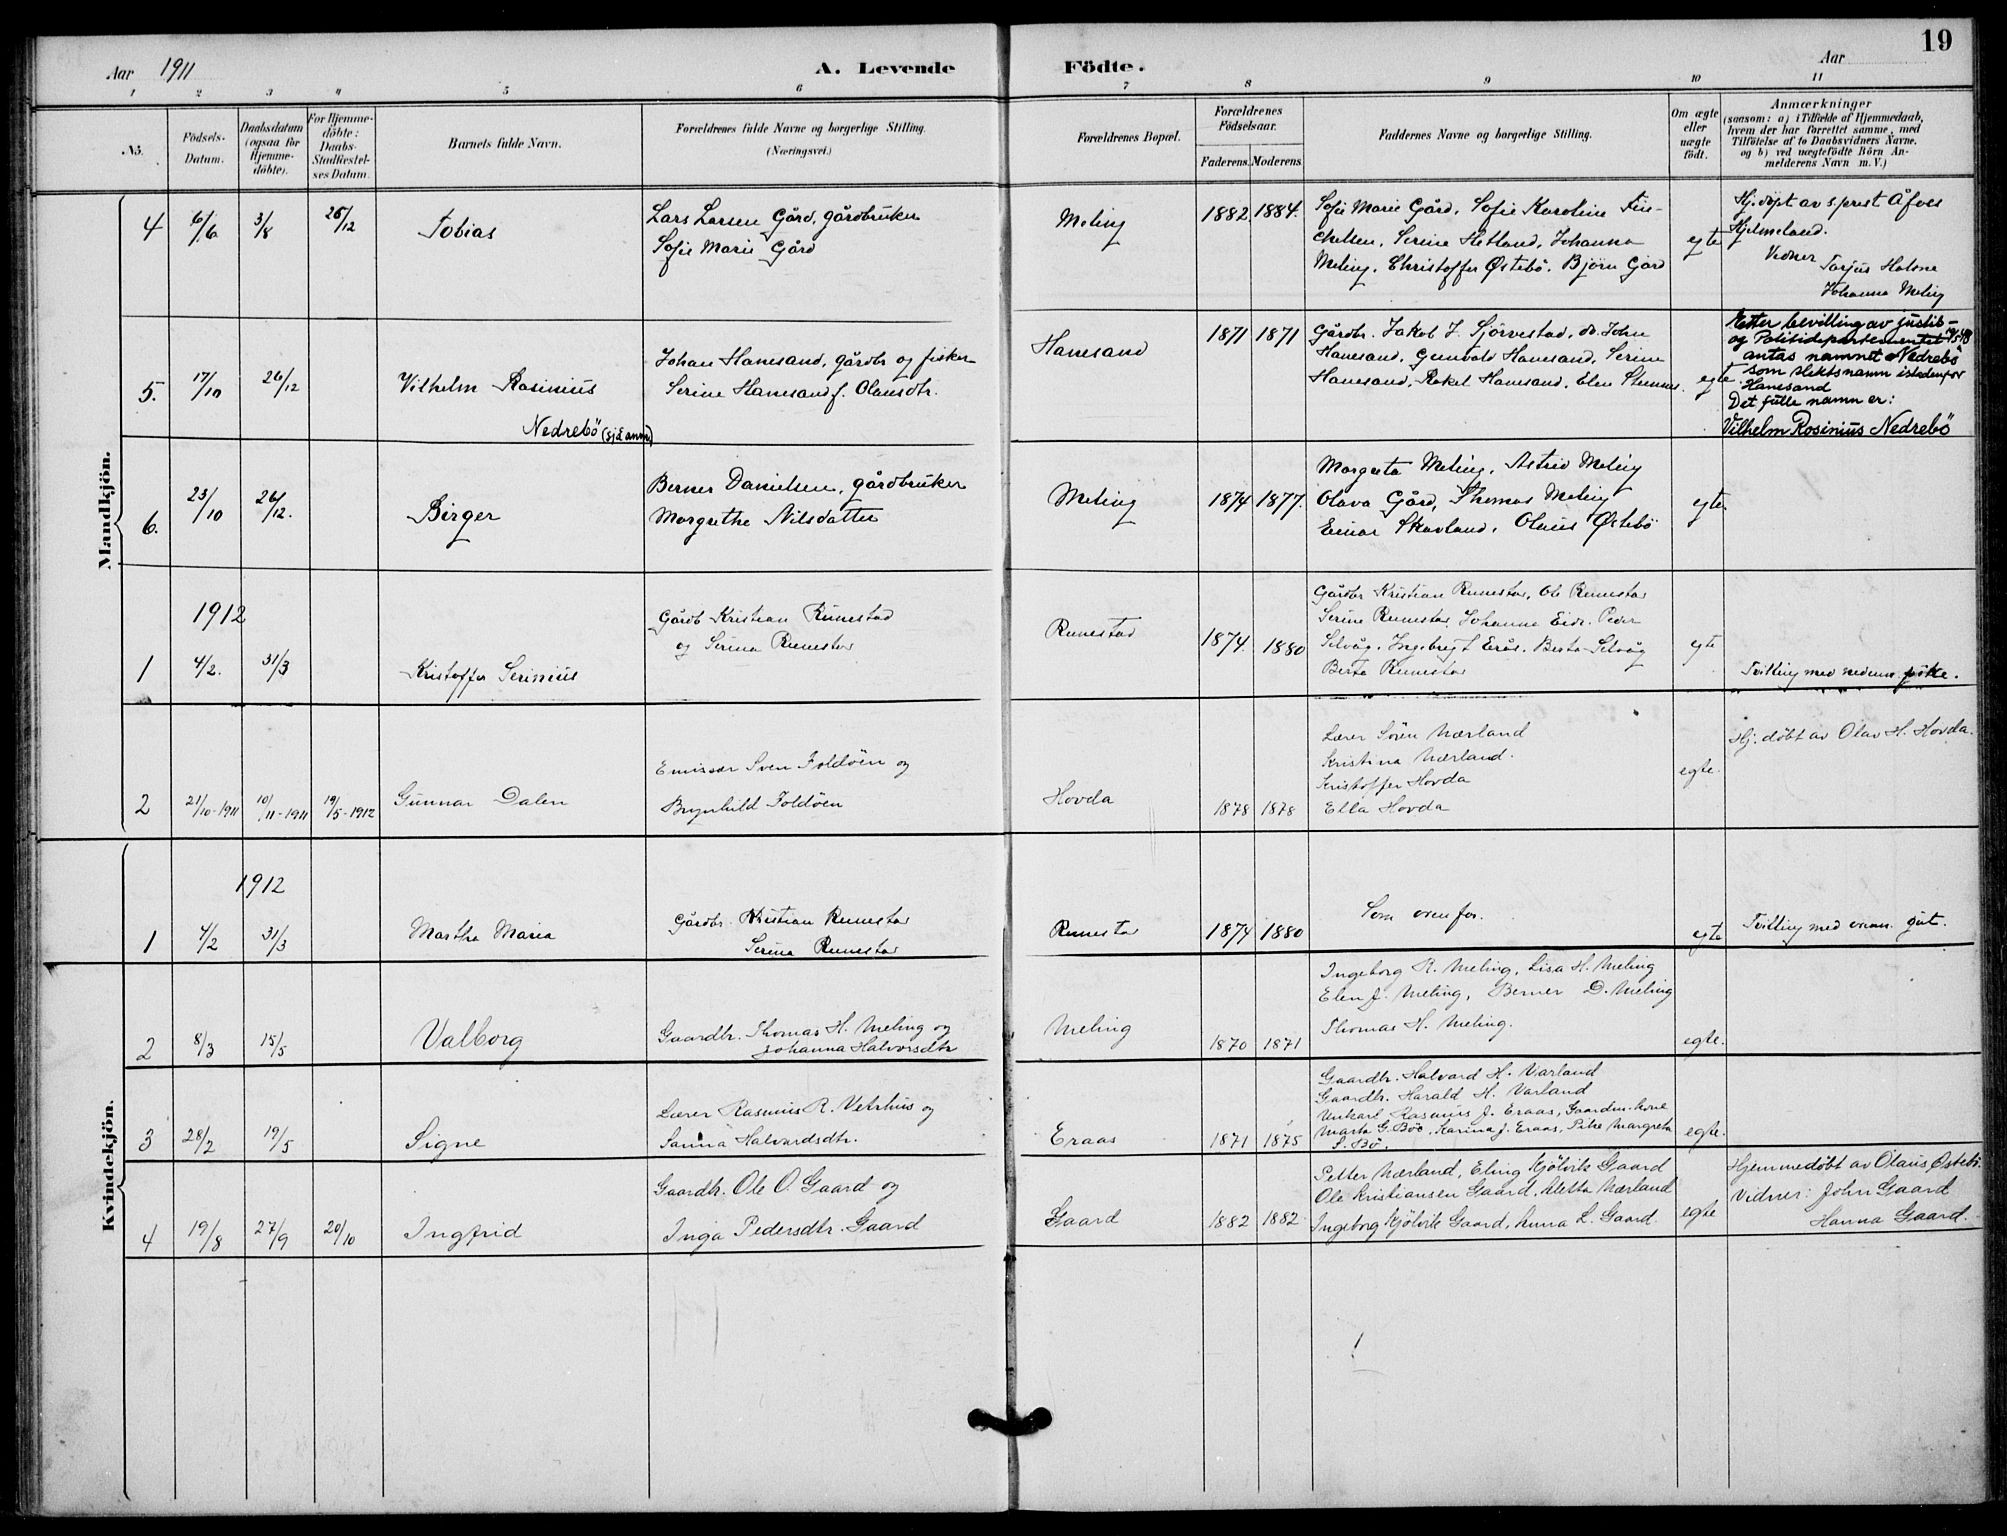 19
Aar 1911 A. Levende Födte. Aar
1 2 3 4 5 6 7 8 9 10 11
No. Födsels-Datum. Daabsdatum (ogsaa for Hjemmedöbte). For Hjemmedöbte: Daabs-Stadfæstelses Datum. Barnets fulde Navn. Forældrenes fulde Navne og borgerlige Stilling. (Næringsvei.) Forældrenes Bopæl. Forældrenes Födselsaar. Faderens. Moderens. Faddernes Navne og borgerlige Stilling. Om ægte eller uægte födt. Anmærkninger (saasom: a) i Tilfælde af Hjemmedaab, hvem der har forrettet samme, med Tilföielse af to Daabsvidners Navne, og b) ved uægtefödte Börn Anmelderens Navn m. V.)
Mandkjön.
4 6/6 3/8 26/12 Tobias
Lars Larsen Gård, gårdbruker
Sofie Marie Gård
Meling 1882 1884.
Sofie Marie Gård, Sofie Karoline
Serine Hetland, Johanna
Meling, Christoffer Østebö, Bjørn Gård
egte
Hj. döpt av s.prest
Hjelmeland.
Vidner Tarjus
Johanna Meling
5. 17/10 26/12 Vilhelm Rosinius
Nedrebö (sjå anm)
Johan Hanesand, gårdbr og fisker
Serine Hanesand f. Olausdtr.
Hanesand 1871 1871
Gårdbr. Jakob J. Sjørvestad, do. John
Hanesand, Gunvald Hanesand, Serine
Hanesand, Rakel Hanesand, Elen
egte.
Etter bevilling av justis-
og Politidepartementet
antas namnet Nedrebö
som slektsnamn istedenfor
Hanesand
Det fulle namn er:
Vilhelm Rosinius Nedrebö
6. 23/10 26/12. Birger
Berner Danielsen, gårdbruker
Margrethe Nilsdatter
Meling 1874 1877.
Margreta Meling, Astrid Meling
Olava Gård, Thomas Meling
Einar Skavland, Olaus Østebö
egte.
1912
1 4/2. 31/3 Kristoffer Serinius
Gårdb Kristian Runestad
og Serina Runestad
Runestad 1874. 1880
Gårdbr Kristian Runestad, Ole Runestad
Serine Runestad, Johanne Eide, Peder
Selvåg, Ingebregt Erås, Berta Selvåg
Berta Runestad
egte
Tvilling med nedenn. pike.
2 21/10-1911 10/11-1911 19/5-1912 Gunnar Dalen
Emissær Sven Foldöen og
Brynhild Foldöen
Hovda 1878 1878
Lærer Sören Nærland
Kristina Nærland.
Kristoffer Hovda
Ella Hovda
egte.
Hj. døbt av Olav H. Hovda.
Kvindekjön.
1912
1 4/2 31/3 Marthe Maria
Gårdbr. Kristian Runestad
Serina Runestad
Runestad 1874 1880
Som ovenfor.
egte
Tvilling med ovenn. gut.
2 8/3 15/5 Valborg
Gaardbr. Thomas H. Meling og
Johanna Halvorsdtr
Meling 1870 1871
Ingeborg R. Meling, Lisa H. Meling
Elen J. Meling, Berner D. Meling
Thomas H. Meling.
egte.
3 28/2 19/5 Signe
Lærer Rasmus R. Vetrhus og
Sanna Halvardsdtr.
Eraas 1871 1875
Gaardbr. Halvard H. Varland
Gaardbr. Harald H. Varland
Unkarl Rasmus J. Eraas, Gaardm. kone
Marta G. Bö, Karina J. Eraas, Pike Margreta
S. Bö.
egte.
4 19/8 27/9 20/10 Ingfrid
Gaardbr. Ole O. Gaard og
Inga Pedersdtr. Gaard
Gaard 1882 1882
Petter Nærland, Eling Kjölvik Gaard
Ole Kristiansen Gaard, Aletta Nærland
Ingeborg Kjölvik Gaard, Anna L. Gaard.
egte
Hjemmedøbt av Olaus Østebö.
Vidner: John Gaard
Hanna Gaard.